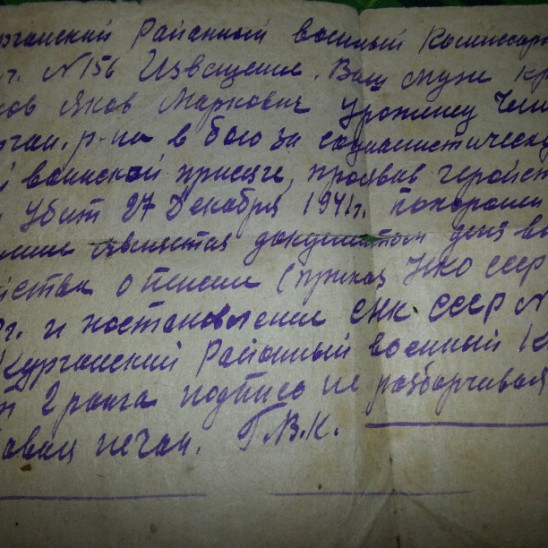 урганский Районный военный Комиссар
г. №156 Извещение. Ваш муж кр
ков Яков Маркович Уроженец Чел
рган. р-на в бою за социалистическу
й воинской присяге, проявив геройст
Убит 27 Декабря 1941г. похорон
ение является документом для во
йства о пенсии (приказ НКО СССР
г. и постановлении СНК СССР N
Курганский Районный военный К
2 ранга подпись не разборчивая
овая печать. Г.В.К.